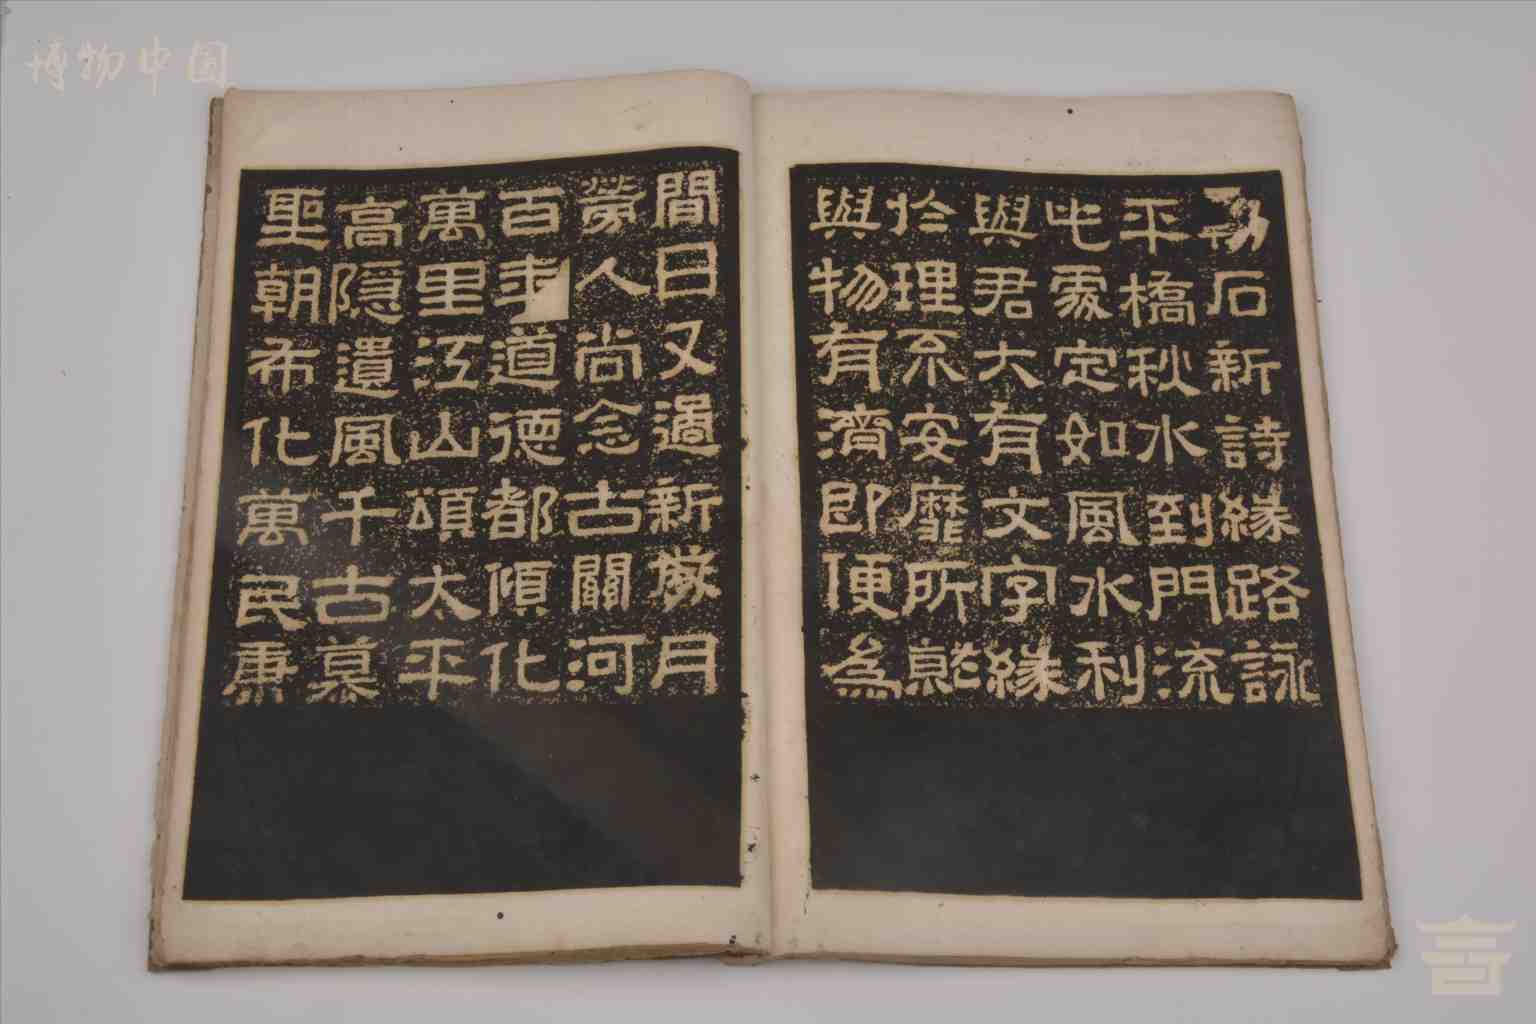 博物中国
石新詩緣路詠
平橋秋水到門流
此處定如風水利
與君大有文字緣
於理不安靡所就
與物有濟即便為
間日又過新歲月
勞人尚念古關河
百年道德都傾化
萬里江山頌太平
高隱遺風千古慕
聖朝布化萬民康